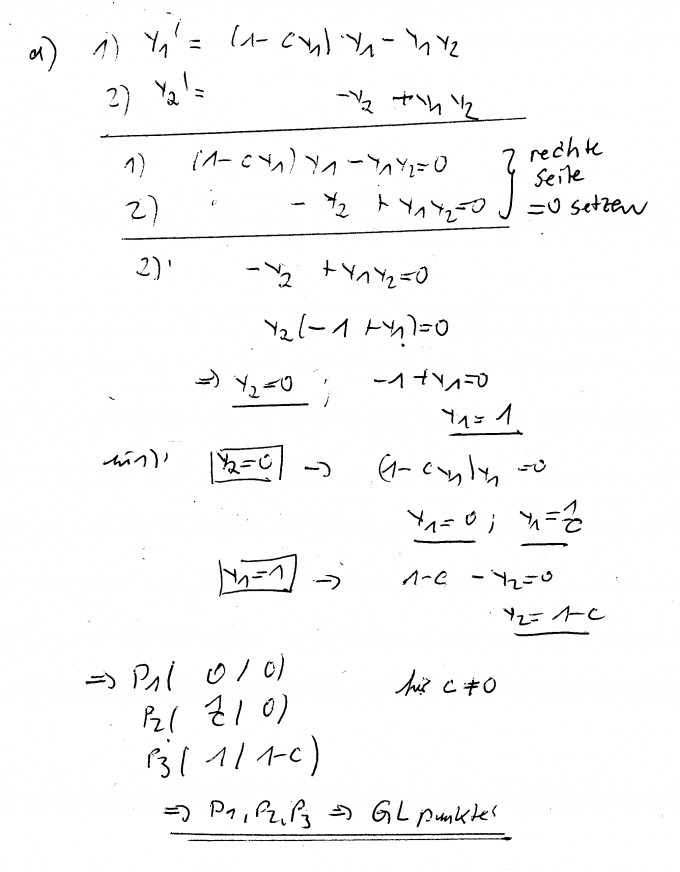 a) 1) y₁' = (1 - cy₁) · y₁ - y₁y₂
2) y₂' = -y₂ + y₁y₂
1) (1 - cy₁) y₁ - y₁y₂ = 0 } rechte
2) - y₂ + y₁y₂ = 0 Seite = 0 setzen
2): -y₂ + y₁y₂ = 0
y₂(-1 + y₁) = 0
⇒ y₂ = 0 ; -1 + y₁ = 0
y₁ = 1
in 1): y₂ = 0 → (1 - cy₁) y₁ = 0
y₁ = 0 ; y₁ = 1/c
y₁ = 1 → 1 - c - y₂ = 0
y₂ = 1 - c
⇒ P1( 0 / 0) für c ≠ 0
P2( 1/c / 0)
P3( 1 / 1-c)
⇒ P1, P2, P3 ⇒ GL punkte